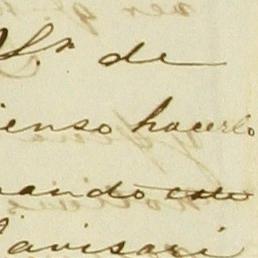 Sr. de
ienso hacerlo
ando este
avisari